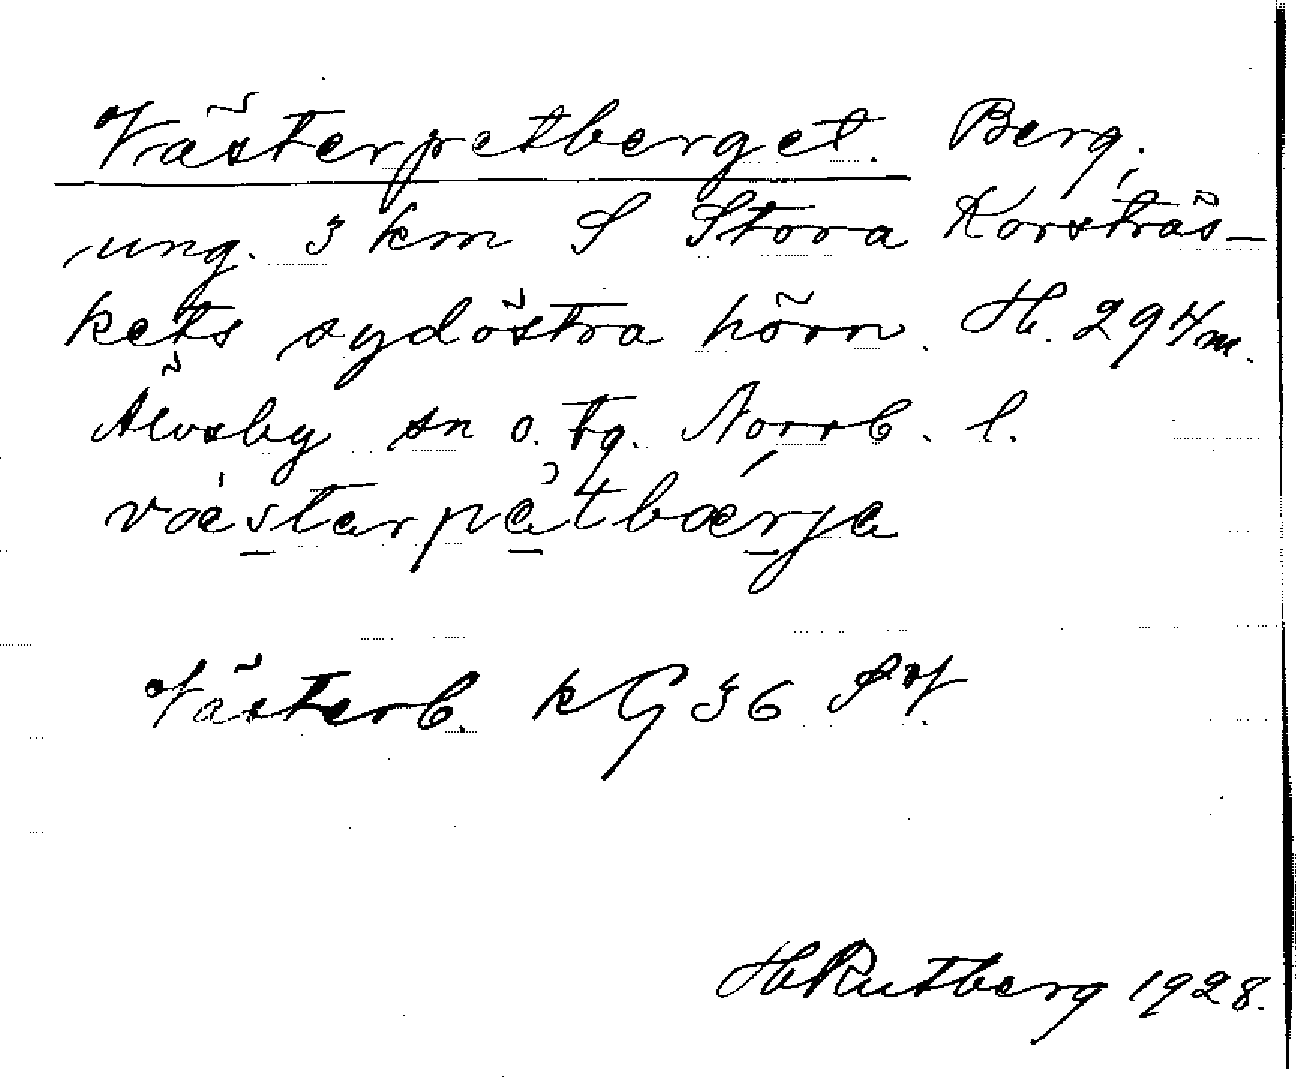 Västerpetberget. Berg,
ung. 3 km S Stora Korsträs-
kets sydöstra hörn. H. 294 m.
Älvsby sn o. tg. Norrb. l.
væstərpètbærjə
Västerb. k G 36 SV.
HRutberg 1928.